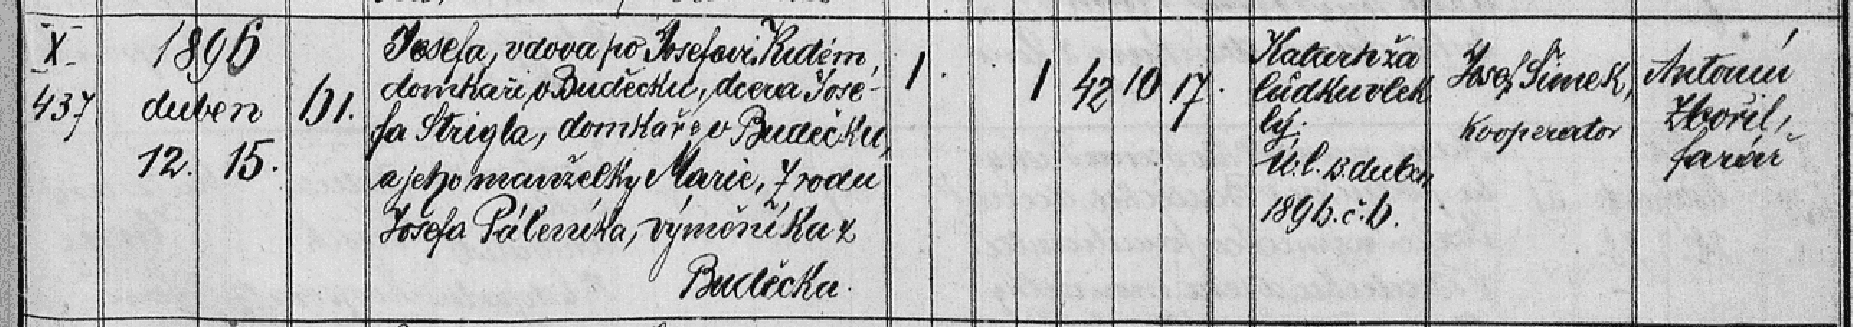 X
437
1896
duben
12. 15.
61.
Josefa, vdova po Josefovi
domkaři v Buděčku, dcera Jose-
fa Strigla, domkaře v Buděčku,
a jeho manželky Marie, † rodu
Josefa Páleníka, výměníka z
Buděčka.
1.
1
42
10
17.
Katarrh
lý.
U. l. duben
1896. č. 6.
Josef Šimek,
Kooperator
Antonín
Zbořil,
farář